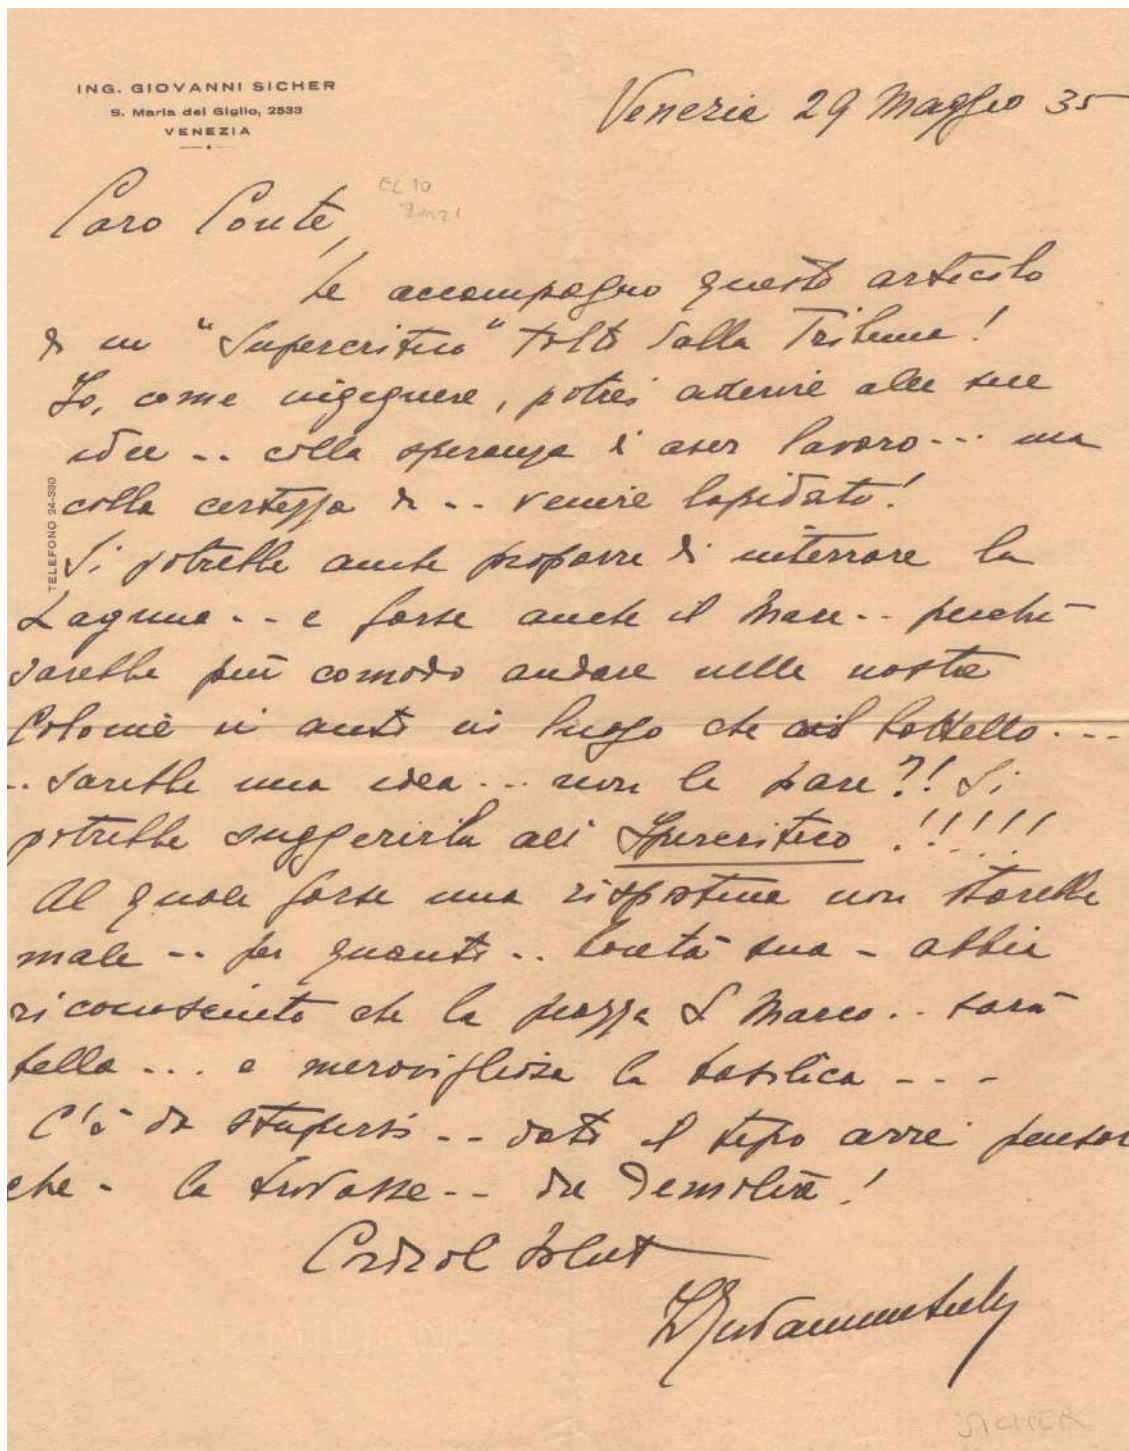 ING. GIOVANNI SICHER
S. Maria del Giglio, 2533
VENEZIA
Venezia 29 Maggio 35
Caro Conte,
Le accompagno questo articolo
di un "Supercritico" tolto dalla Tribuna!
Io, come ingegnere, potrei aderire alle sue
idee .. colla speranza di aver lavoro... ma
colla certezza di .. venire lapidato!
TELEFONO 24-380
Si potrebbe anche proporre di interrare la
Laguna .. e forse anche il Mare .. perchè
sarebbe più comodo andare nelle nostre
Colonie in auto in luogo che col battello ...
.. Sarebbe una idea ... non le pare?! Si
potrebbe suggerirla al Supercritico !!!!!!
Al quale forse una rispostina non starebbe
male .. per quanto .. bontà sua - abbia
riconosciuto che la piazza S Marco .. sarà
bella ... e meravigliosa la basilica - - -
C'è da stupirsi .. dato il tipo avrei pensato
che - la trovasse .. da demolire!
Cordiali saluti
SICHER